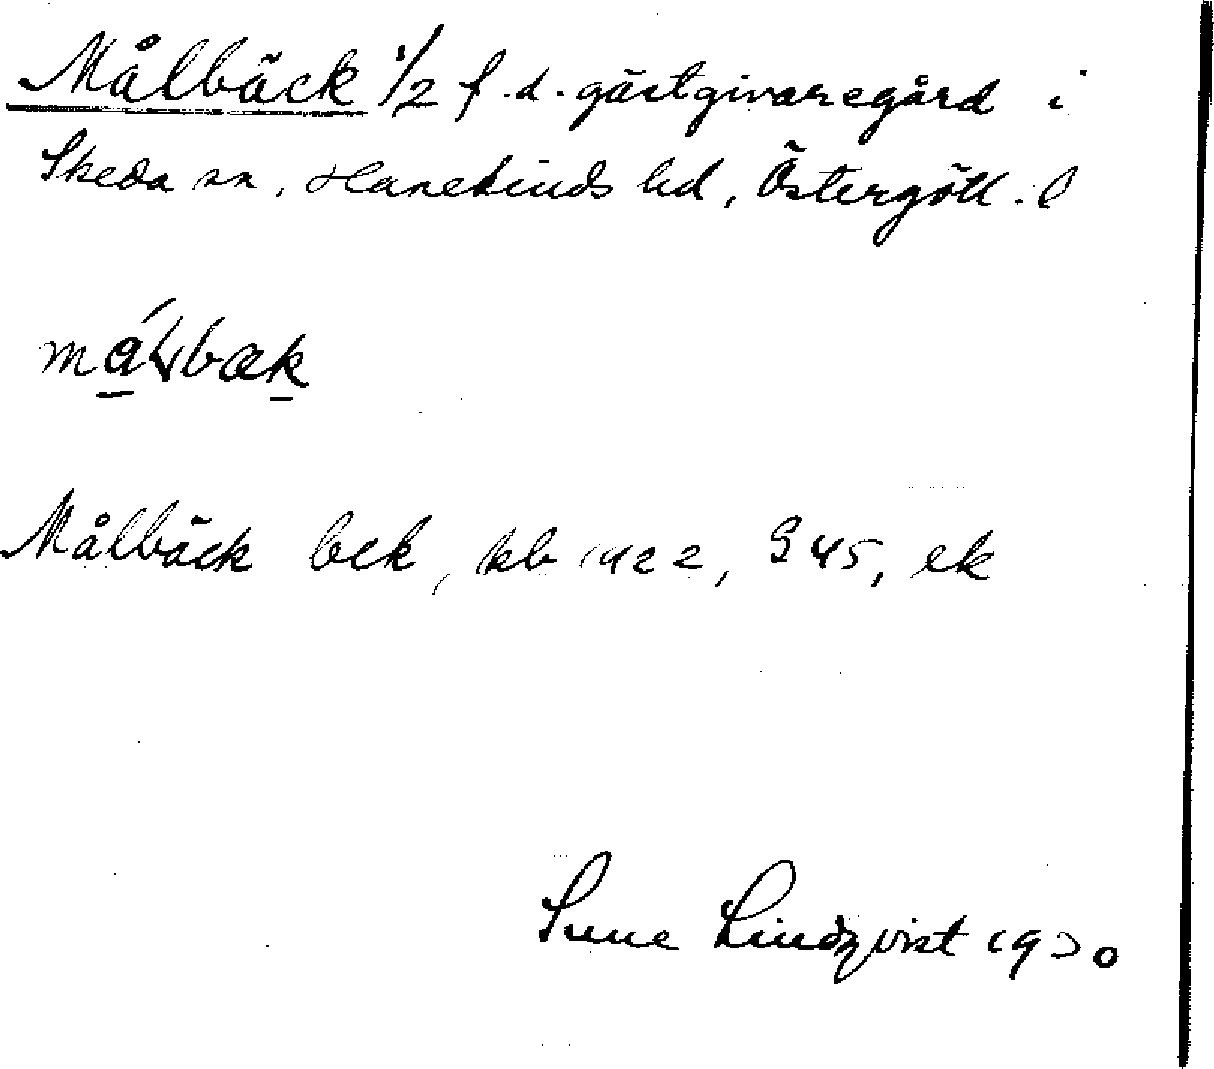 Målbäck 1/2 f.d. gästgivaregård i
Skeda sn, Hanekinds hd, Östergötl. l
Målbäck bek, kb 1922, S 45, ek
Sune Lindqvist 1930